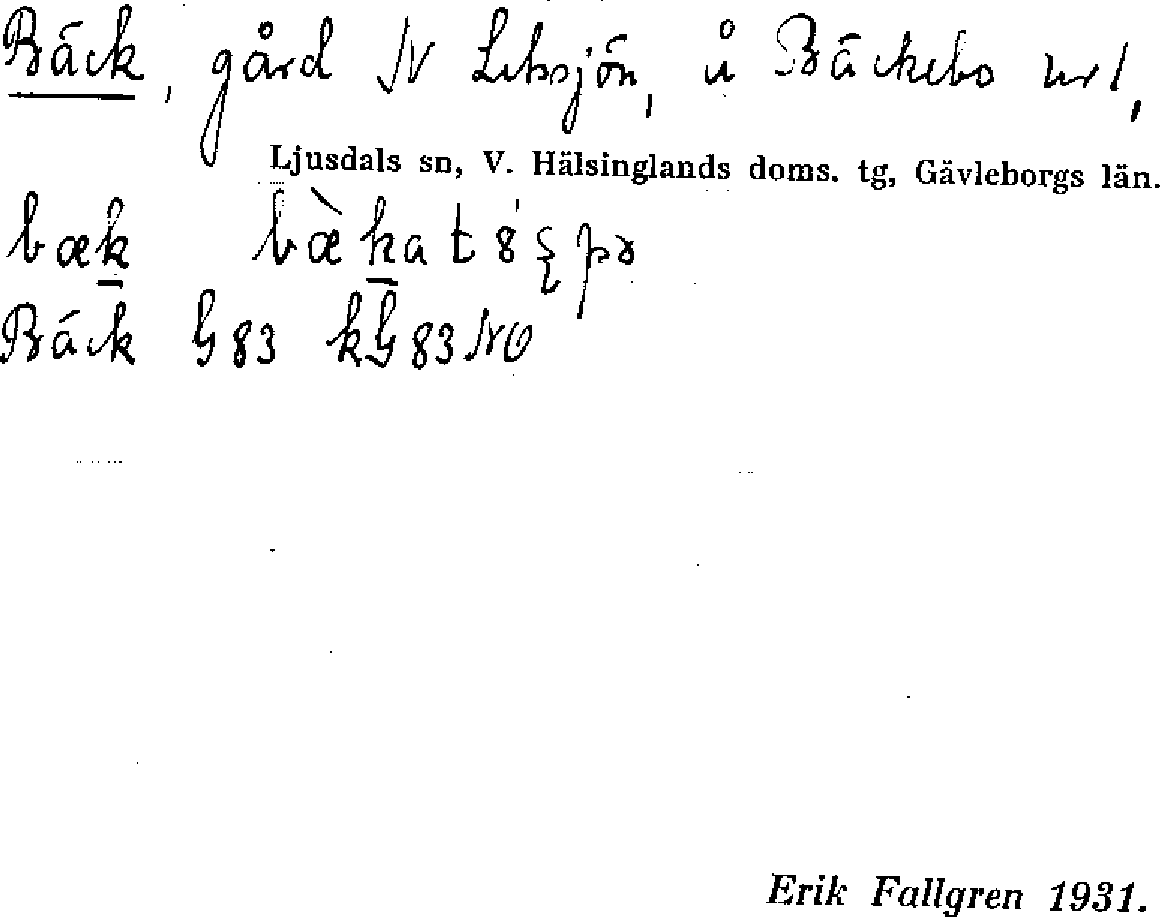 Bäck, gård N Letssjön, å Bäckebo nr 1,
Ljusdals sn, V. Hälsinglands doms. tg, Gävleborgs län.
bæk bæ̀ka
Bäck G 83 kG 83 NO
Erik Fallgren 1931.